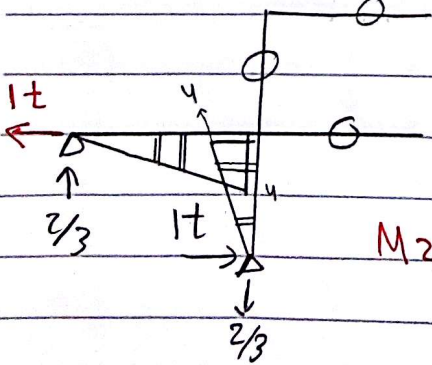 1t
4
4
2/3
1t
M2
2/3